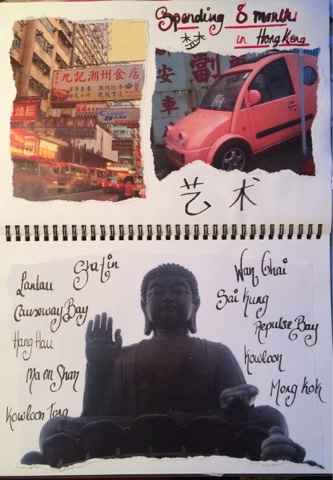 Spending 8 month
梦 in Hong Kong
九記潮州食店
安富
車
艺术
Sha tin
Lantau
Causeway Bay
Hang Hau
Ma on Shan
Kowloon Tong
Wan Chai
Sai Kung
Repulse Bay
Kowloon
Mong Kok